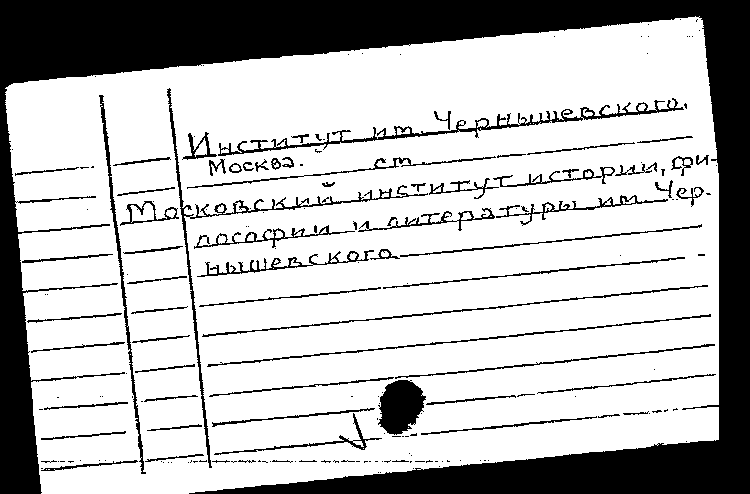 Институт им. Чернышевского.
Москва. ст.
Московский институт истории, фи-
лософии и литературы им. Чер-
нышевского